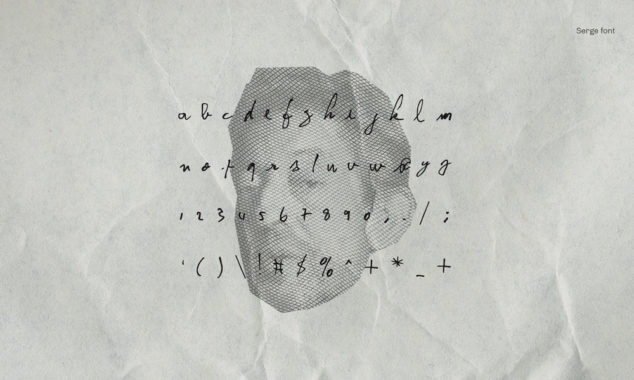 Serge font
a b c d e f g h i j k l m
n o p q r s t u v w x y z
1 2 3 4 5 6 7 8 9 0 , . / ;
' ( ) \ ! # $ % ^ + * _ +